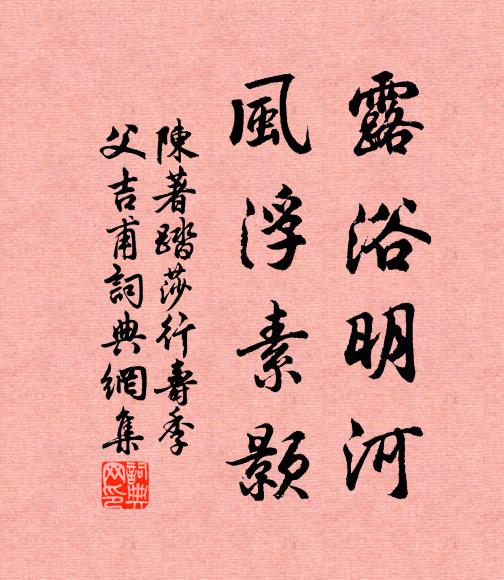 露浴明河
風浮素顥
陳著踏莎行壽季
父吉甫詞典網集
詞典
网印